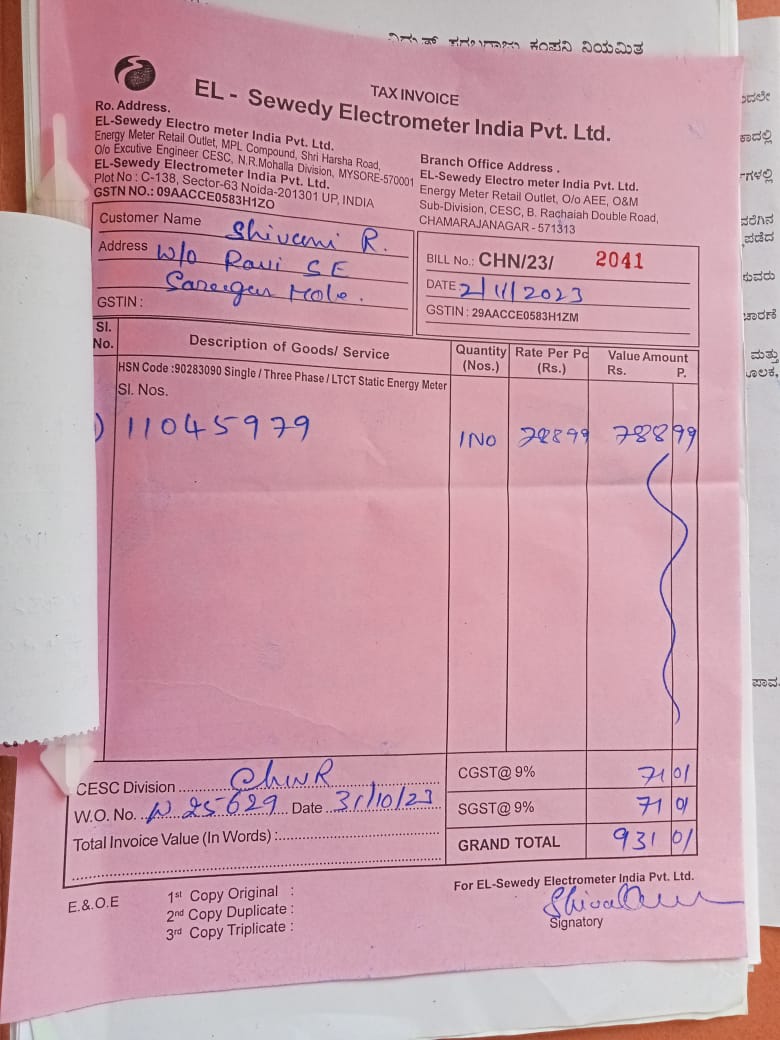 ಕಂಪನಿ ನಿಯಮಿತ
TAX INVOICE
EL - Sewedy Electrometer India Pvt. Ltd.
Ro. Address.
EL-Sewedy Electro meter India Pvt. Ltd.
Energy Meter Retail Outlet, MPL Compound, Shri Harsha Road,
O/o Excutive Engineer CESC, N.R.Mohalla Division, MYSORE-570001
EL-Sewedy Electrometer India Pvt. Ltd.
Plot No : C-138, Sector-63 Noida-201301 UP, INDIA
GSTN NO.: 09AACCE0583H1ZO
Branch Office Address .
EL-Sewedy Electro meter India Pvt. Ltd.
Energy Meter Retail Outlet, O/o AEE, O&M
Sub-Division, CESC, B. Rachaiah Double Road,
CHAMARAJANAGAR - 571313
Customer Name Shivani R.
Address W/o Ravi S E
Hole.
GSTIN :
BILL No.: CHN/23/ 2041
DATE 2/11/2023
GSTIN : 29AACCE0583H1ZM
Sl. No. Description of Goods/ Service Quantity (Nos.) Rate Per Pc (Rs.) Value Amount Rs. P.
HSN Code :90283090 Single / Three Phase / LTCT Static Energy Meter
Sl. Nos.
1) 11045979 1 NO 78899 788 99
CESC Division ChNR
CGST@ 9% 71 01
W.O. No. N 25629 Date 31/10/23
SGST@ 9% 71 01
Total Invoice Value (In Words) :
GRAND TOTAL 931 01
E.&.O.E
1st Copy Original :
2nd Copy Duplicate :
3rd Copy Triplicate :
For EL-Sewedy Electrometer India Pvt. Ltd.
Signatory